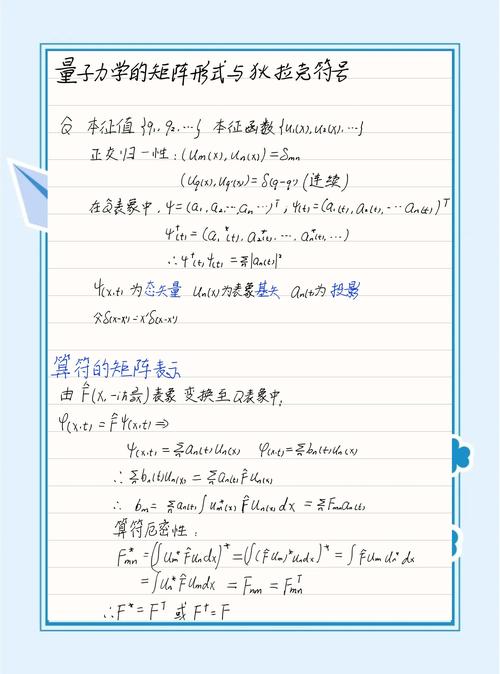 量子力学的矩阵形式与狄拉克符号
Q̂ 本征值 {q₁, q₂, ⋯} 本征函数 {u₁(x), u₂(x), ⋯}
正交归一性: (um(x), un(x)) = δmn
(uq(x), uq'(x)) = δ(q-q') (连续)
在Q表象中, ψ = (a₁, a₂, ⋯, an, ⋯)ᵀ, ψ(t) = (a₁(t), a₂(t), ⋯ an(t))ᵀ
ψ†(t) = (a₁*(t), a₂*(t), ⋯, an*(t), ⋯)
∴ ψ†(t) ψ(t) = Σn |an(t)|²
ψ(x,t) 为态矢量 un(x)为表象基矢 an(t)为投影
δ(x-x') = x'δ(x-x')
算符的矩阵表示
由 F̂(x, -iħ ∂/∂x) 表象 变换至Q表象中:
φ(x,t) = F̂ψ(x,t) ⇒
ψ(x,t) = Σn an(t) un(x) φ(x,t) = Σn bn(t) un(x)
∴ Σn bn(t) un(x) = Σn an(t) F̂un(x)
∴ bm = Σn an(t) ∫ um*(x) F̂un(x) dx = Σn Fmn an(t)
算符厄密性:
Fmn* = (∫ um* F̂un dx)* = (∫ (F̂um)* un dx)* = ∫ F̂um un* dx
= ∫ un* F̂um dx = Fnm = Fmnᵀ
∴ F* = Fᵀ 或 F† = F